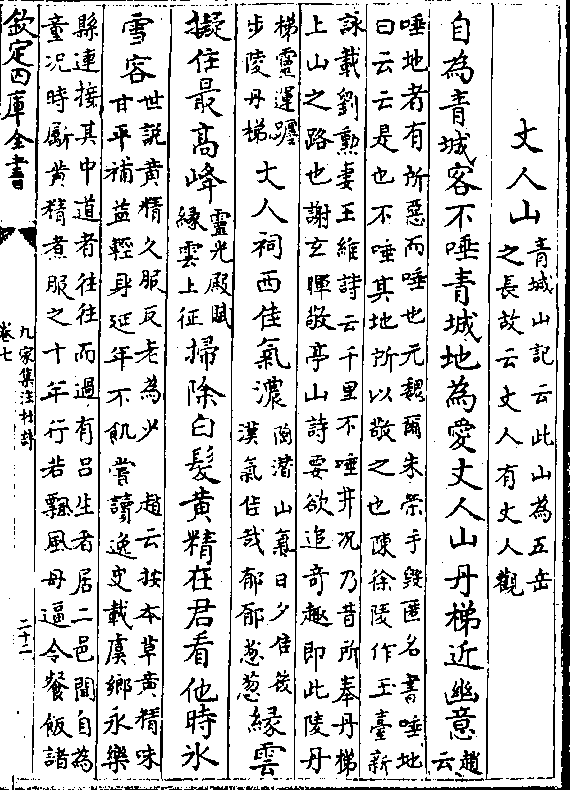 丈人山
青城山記云此山為五岳
之長故云丈人有丈人觀
自為青城客不唾青城地為愛丈人山丹梯近幽意
趙
云
唾地者有所惡而唾也元魏爾朱榮手毀匿名書唾地
曰云云是也不唾其地所以敬之也陳徐陵作玉臺新
詠載劉勲妻王維詩云千里不唾井况乃昔所奉丹梯
上山之路也謝玄暉敬亭山詩要欲追奇趣即此陵丹
梯靈運躧
步陵丹梯
丈人祠西佳氣濃
陶潛山氣日夕佳後
漢氣佳哉郁郁葱葱
緣雲
擬住最高峰
靈光殿賦
緣雲上征
掃除白髮黄精在君看他時氷
雪容
世說黄精久服反老為少 趙云按本草黄精味
甘平補益輕身延年不飢嘗讀逸史載虞鄉永樂
縣連接其中道者往往而過有呂生者居二邑間自為
童况時斸黄精煮服之十年行若飄風母逼令餐飯諸
欽定四庫全書
九家集注杜詩
卷七
二十二